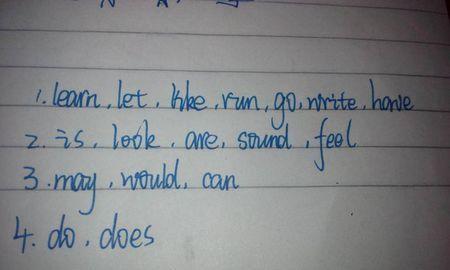 1. learn, let, like, run, go, write, have
2. is, look, are, sound, feel
3. may, would, can
4. do, does